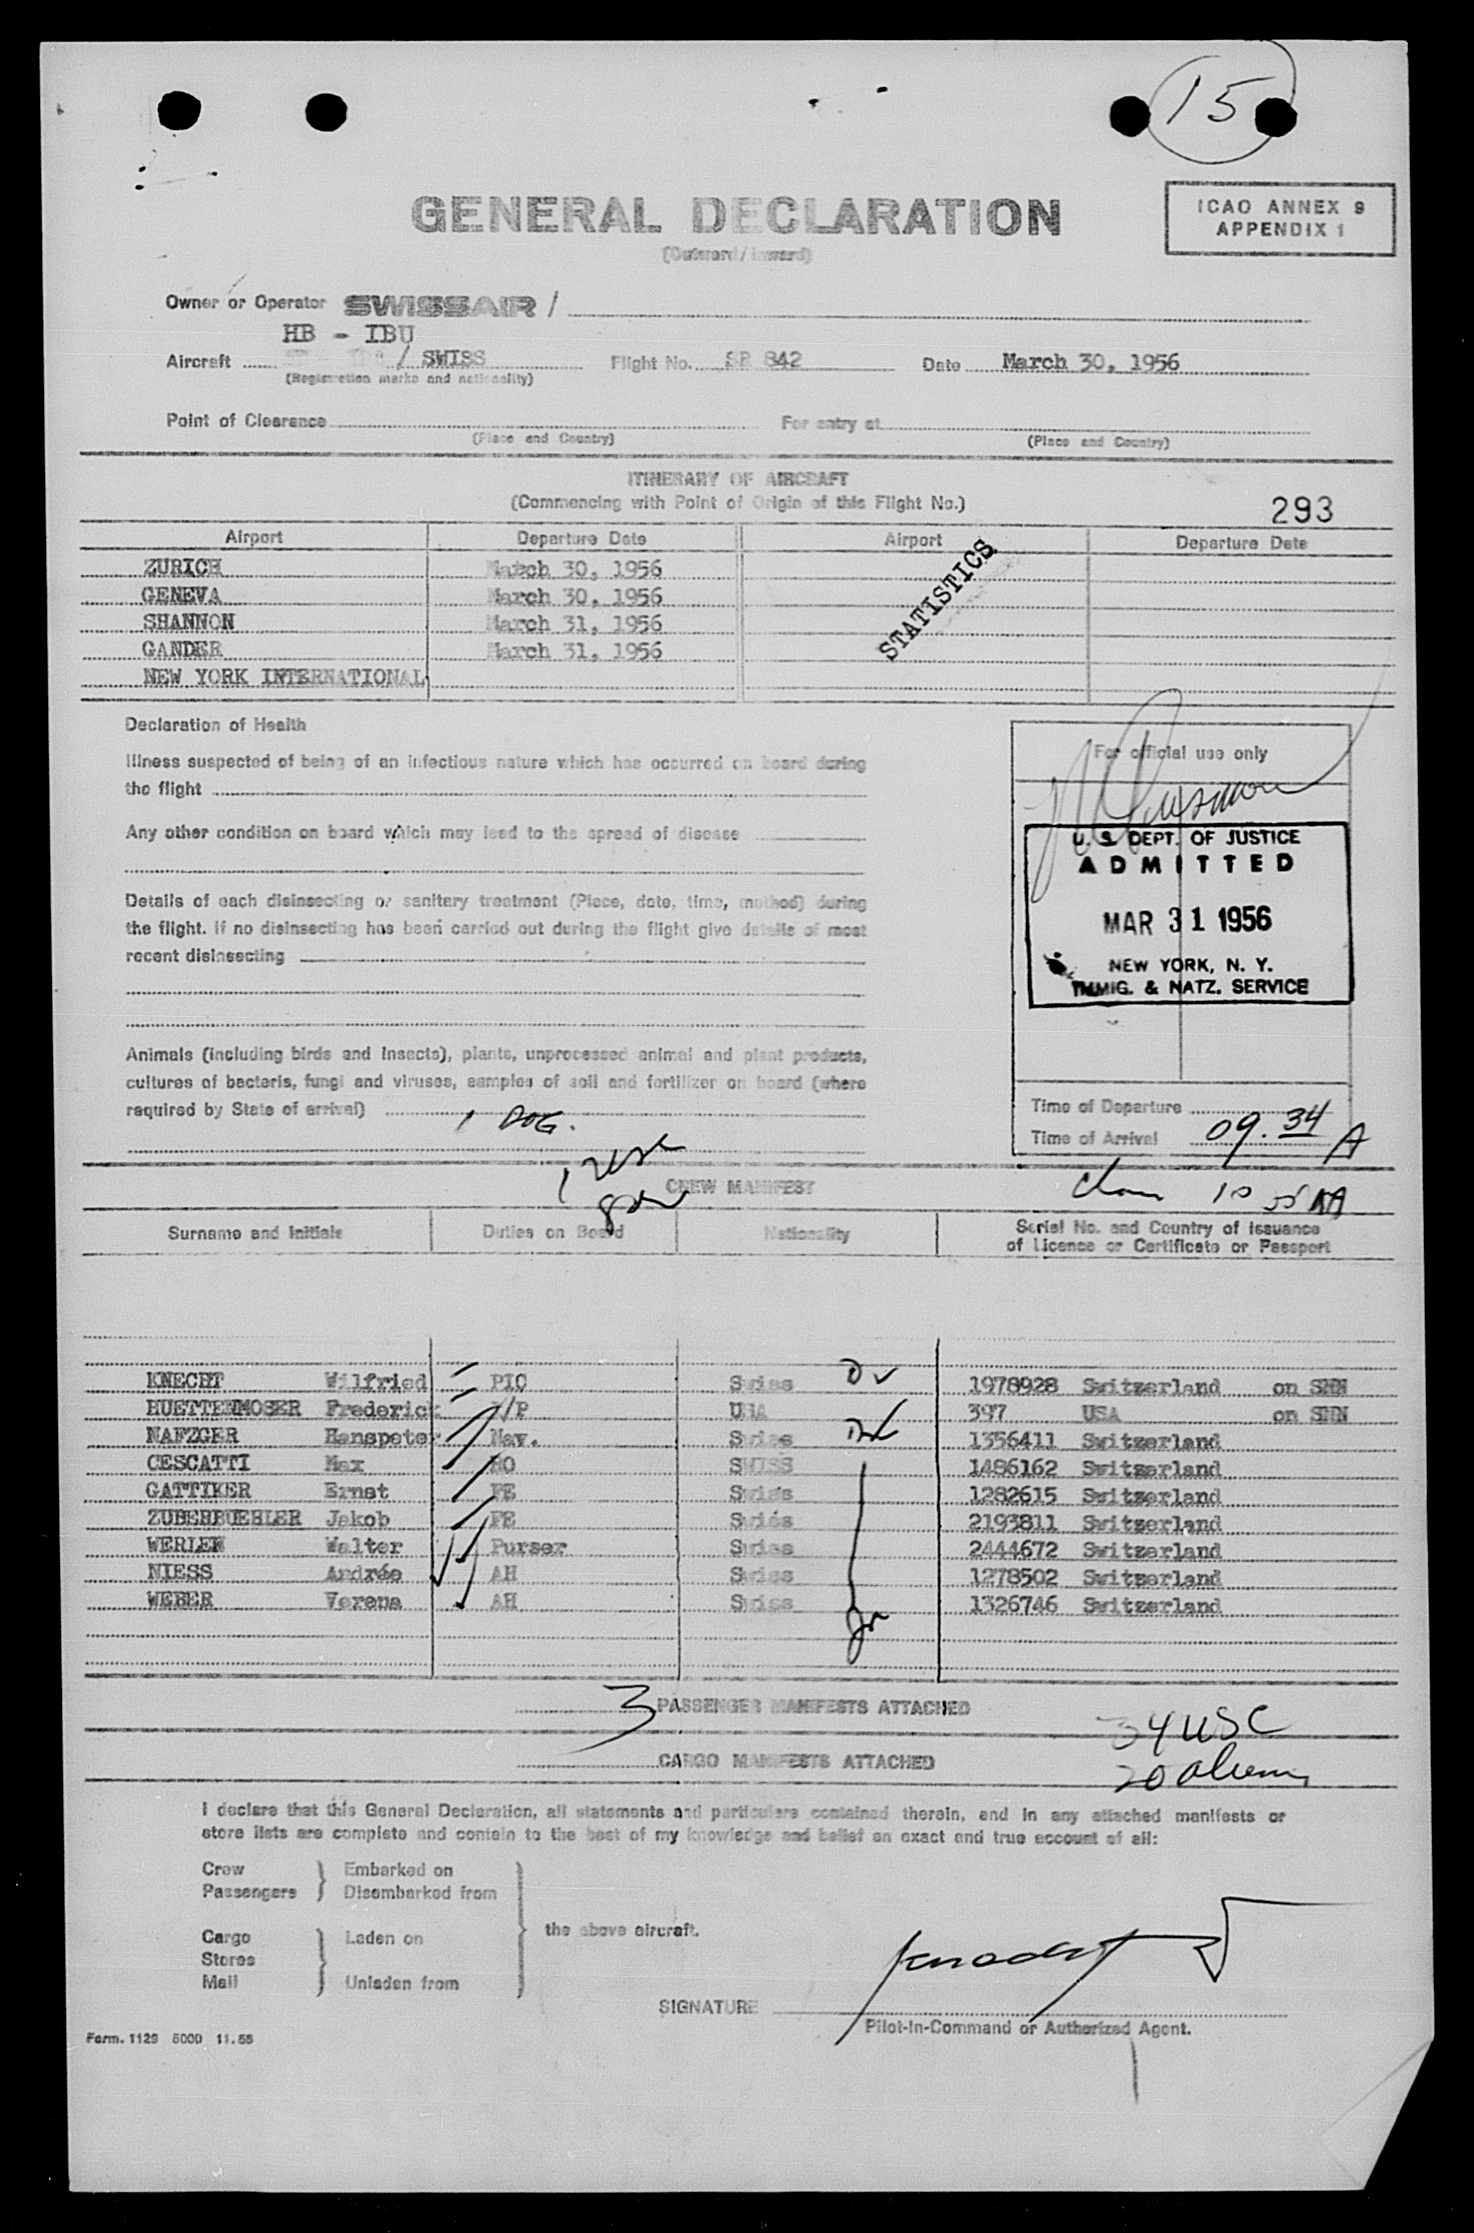 15
GENERAL DECLARATION
(Outward / Inward)
ICAO ANNEX 9
APPENDIX 1
Owner or Operator SWISSAIR /
HB - IBU
Aircraft / SWISS Flight No. SR 842 Date March 30, 1956
(Registration marks and nationality)
Point of Clearance For entry at
(Place and Country) (Place and Country)
ITINERARY OF AIRCRAFT
(Commencing with Point of Origin of this Flight No.)
293
Airport Departure Date Airport Departure Date
ZURICH March 30, 1956
GENEVA March 30, 1956
SHANNON March 31, 1956
GANDER March 31, 1956
NEW YORK INTERNATIONAL
STATISTICS
Declaration of Health
Illness suspected of being of an infectious nature which has occurred on board during
the flight
Any other condition on board which may lead to the spread of disease
Details of each disinsecting or sanitary treatment (Place, date, time, method) during
the flight. If no disinsecting has been carried out during the flight give details of most
recent disinsecting
Animals (including birds and insects), plants, unprocessed animal and plant products,
cultures of bacteria, fungi and viruses, samples of soil and fertilizer on board (where
required by State of arrival)
1 DOG.
For official use only
U. S. DEPT. OF JUSTICE
ADMITTED
MAR 31 1956
NEW YORK, N. Y.
IMMIG. & NATZ. SERVICE
Time of Departure
Time of Arrival 09.34 A
CREW MANIFEST
Surname and Initials Duties on Board Nationality Serial No. and Country of Issuance
of Licence or Certificate or Passport
KNECHT Wilfried PIC Swiss 1978928 Switzerland on SNN
HUETTENMOSER Frederick /P USA 397 USA on SNN
NAFZGER Hanspeter Nav. Swiss 1356411 Switzerland
CESCATTI Max RO SWISS 1486162 Switzerland
GATTIKER Ernst FE Swiss 1282615 Switzerland
ZUBERBUEHLER Jakob FE Swiss 2193811 Switzerland
WERLEN Walter Purser Swiss 2444672 Switzerland
NIESS Andrée AH Swiss 1278502 Switzerland
WEBER Verena AH Swiss 1326746 Switzerland
3 PASSENGER MANIFESTS ATTACHED
34 USC
CARGO MANIFESTS ATTACHED
20 aliens
I declare that this General Declaration, all statements and particulars contained therein, and in any attached manifests or
store lists are complete and contain to the best of my knowledge and belief an exact and true account of all:
Crew Embarked on
Passengers Disembarked from
the above aircraft.
Cargo Laden on
Stores
Mail Unladen from
SIGNATURE
Pilot-in-Command or Authorized Agent.
Form. 1129 5000 11.55